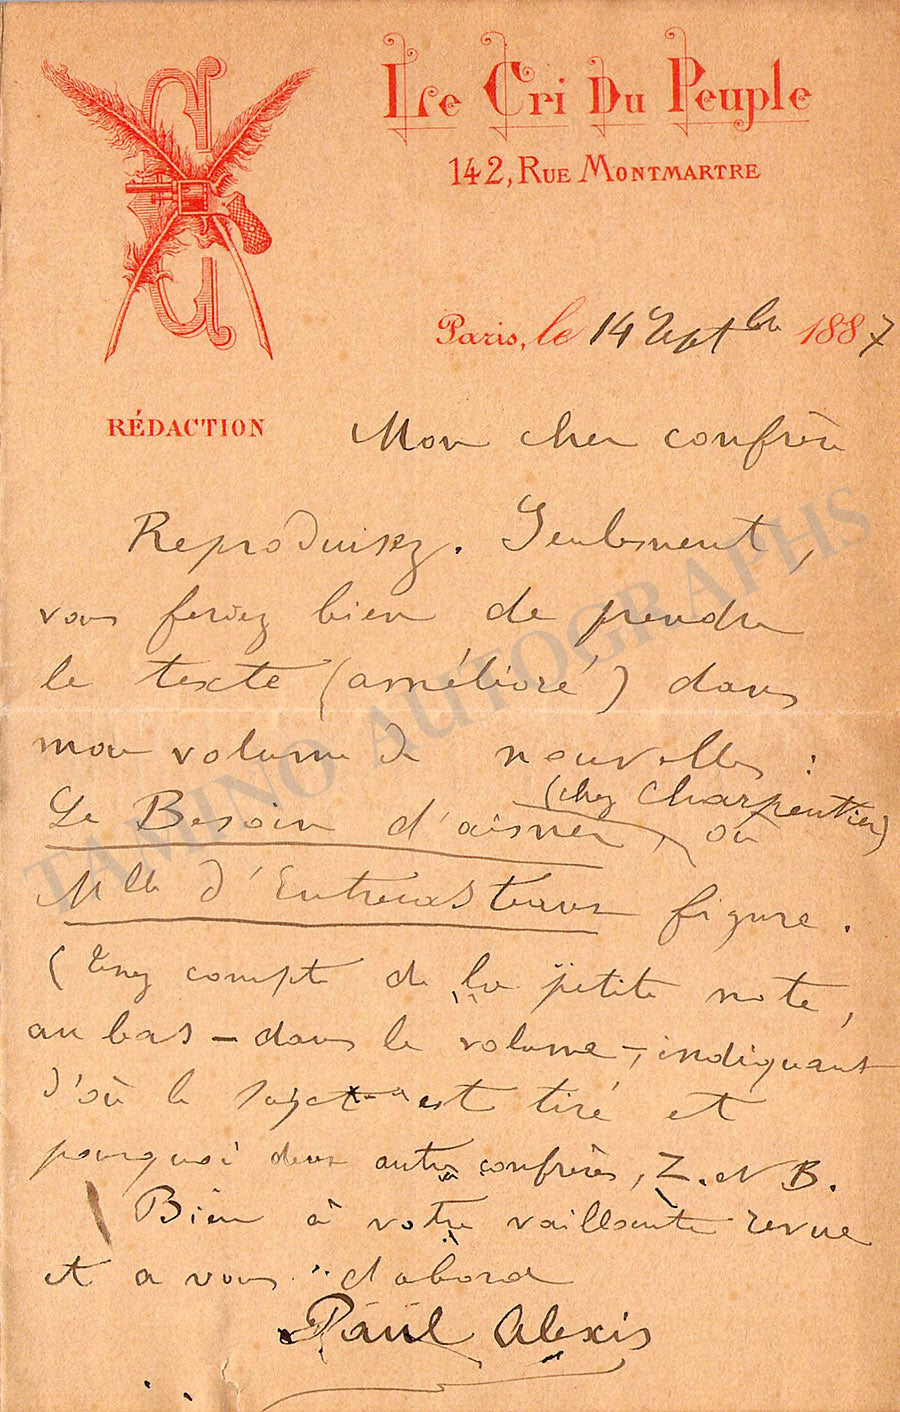 Le Cri Du Peuple
142, Rue Montmartre
Paris, le 14 Septbre 1887
RÉDACTION
Mon cher confrère
Reproduisez. Seulement,
vous feriez bien de prendre
le texte (amélioré) dans
mon volume de nouvelles :
(chez Charpentier)
Le Besoin d'aimer, où
Mlle d'Entrecasteaux figure.
(Tenez compte de la petite note,
au bas – dans le volume –, indiquant
d'où le sujet est tiré et
pourquoi deux autres confrères, Z. et B.
Bien à votre vaillante revue
et a vous d'abord
Paul Alexis
TAMINO AUTOGRAPHS